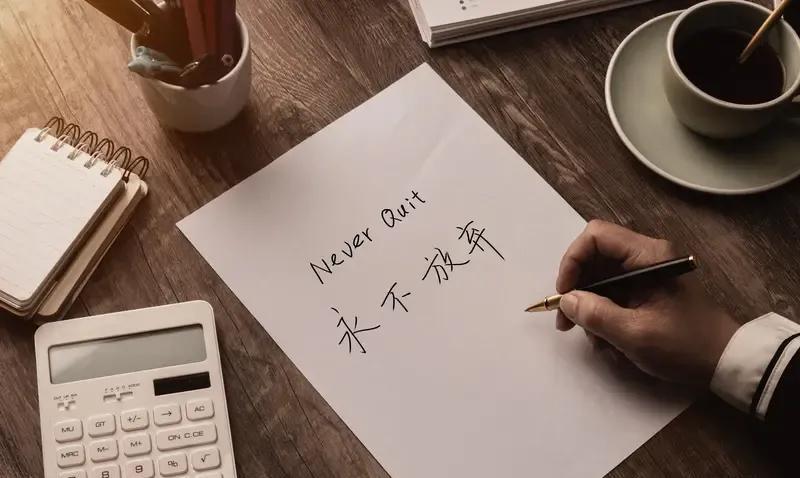 Never Quit
永不放弃
MU GT +/- → AC
MRC M- M+ ON C.CE
8 9 % √